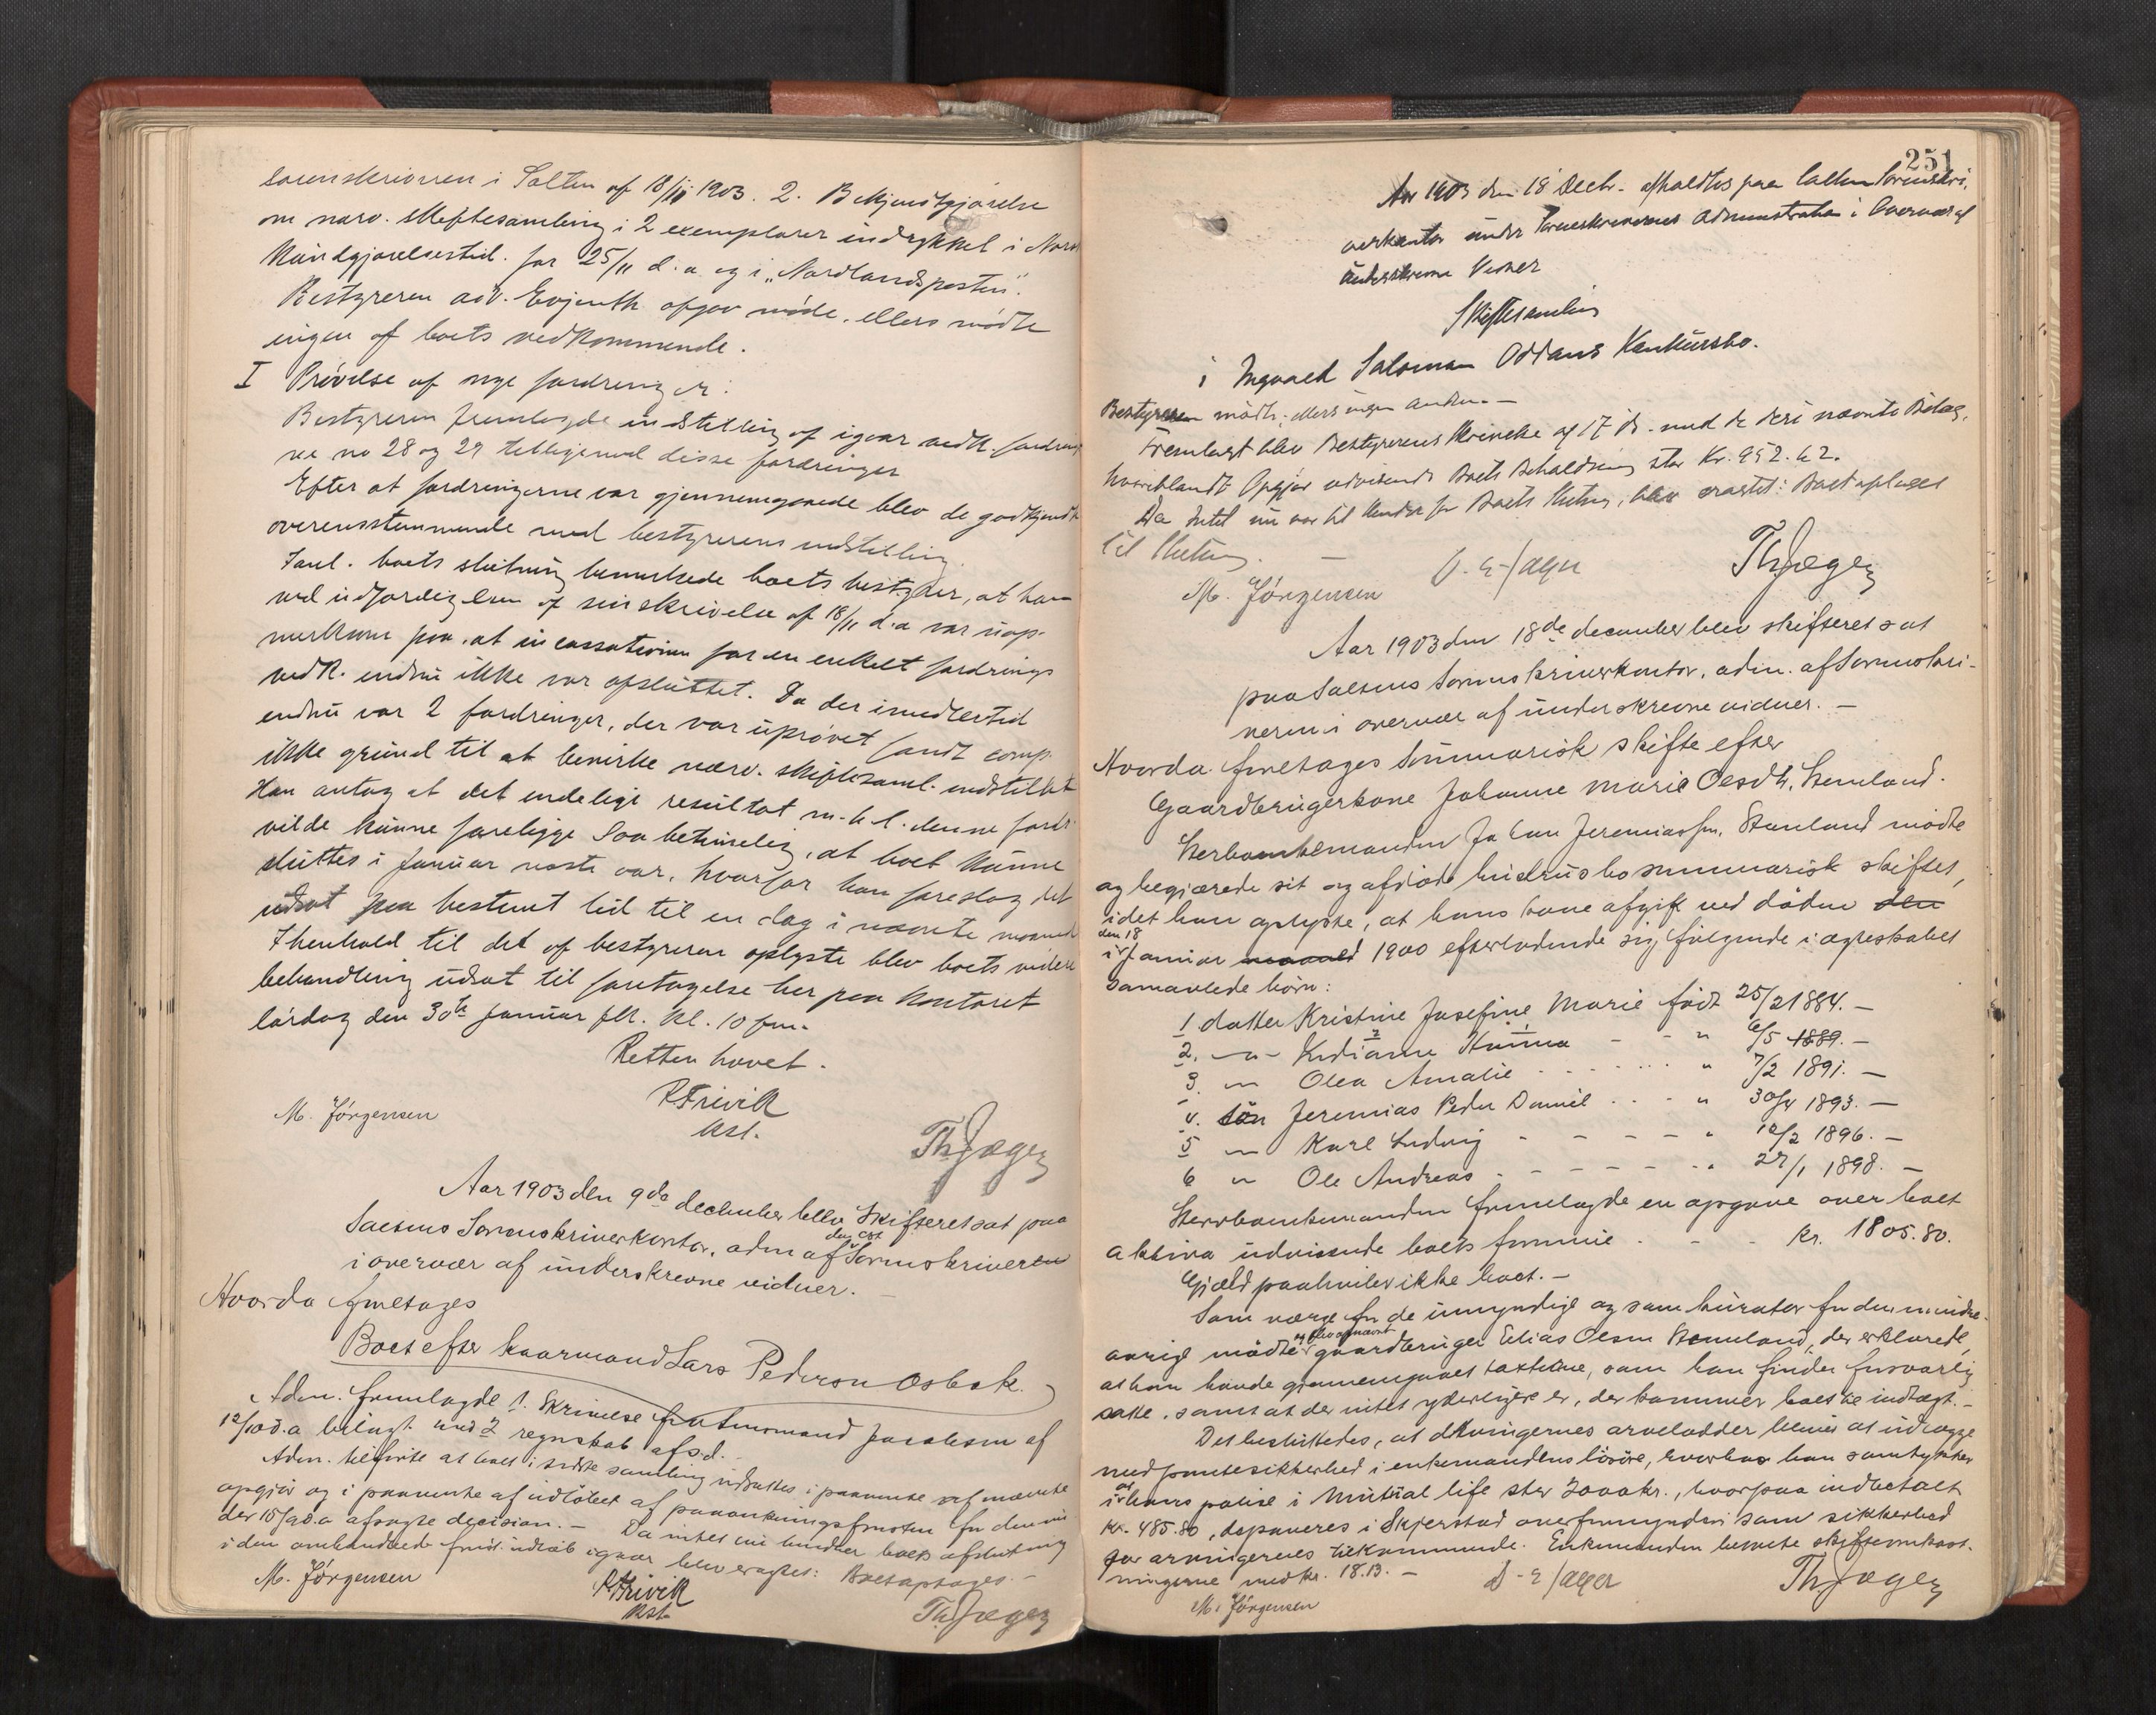 sorenskriveren i Salten af 18/11 1903. 2. Bekjendtgjørelse
om nærv. skiftesamling i 2 exemplarer indrykket i Norsk
Kundgjørelsestid. for 25/11 d.a. og i "Nordlandsposten".
Bestyreren adv. Evjenth opgav møde. ellers mødte
ingen af boets vedkommende.
I Prøvelse af nye fordringer:
Bestyreren fremlagde indstilling af igaar vedk. fordring
ne no 28 og 29 tilligemed disse fordringer
Efter at fordringerne var gjennemgaaede blev de godkjendt
overensstemmende med bestyrerens indstilling.
Fael. boets slutning bemerkede boets bestyrer, at han
ved udfærdigelsen af sin skrivelse af 18/11 d.a var uop-
merksom paa, at incassationen for en enkelt fordrings
vedk. endnu ikke var afsluttet. Da der imedlertid
endnu var 2 fordringer, der var uprøvet fandt comp.
ikke grund til at bevirke nærv. skiftesaml. indstillet
Han antog at det endelige resultat m.h.t. denne fordr.
vilde kunne foreligge saa betimelig, at boet kunne
sluttes i januar næste aar, hvorfor han foreslog det
udsat paa bestemt tid til en dag i nævnte maaned
I henhold til det af bestyreren oplyste blev boets videre
behandling udsat til foretagelse her paa kontoret
lørdag den 30te januar f.k. kl. 10 fm.
Retten hævet.
M. Jørgensen
R Frivik
kst.
Th Jæger
Aar 1903 den 9de december blev Skifteret sat paa
Saltens Sorenskriverkontor, adm af den cst Sorenskriveren
i overvær af underskrevne vidner.
Hvorda foretages
Boet efter kaarmand Lars Pederson Osbak.
Adm. fremlagde 1. Skrivelse fra Lensmand Jacobsen af
12/10 d.a bilagt med 2 regnskab afs.d.
Adm. tilførte at boet i sidste samling udsattes i paavente af nævnte
opgjør og i paavente af udløbet af paaankningsfristen for den un
der 15/9 d.a afsagte decision. - Da intet nu hindrer boets afslutning
i den omhandlede frist udløb igaar blev eragtet: Boet optages. -
M. Jørgensen
R Frivik
kst.
Th. Jæger
251
Aar 1903 den 18 Decbr. afholdtes paa Salten Sorenskri-
verkontor under Sorenskriverens Administration i Overvær af
underskrevne Vidner
Skiftesamling
i Ingvald Salomon Oddans Konkursbo.
Bestyreren mødte; ellers ingen anden. -
Fremlagt blev Bestyrerens Skrivelse af 17 ds. med de deri nævnte Bilag,
hvoriblandt Opgjør udvisende Boets Beholdning stor Kr. 952.62.
Da Intet nu var til Hinder for Boets Slutning, blev eragtet: Boet oplages
til Slutning. -
M. Jørgensen
Th Jæger
Aar 1903 den 18de december blev skifteret sat
paa Saltens Sorenskriverkontor, adm. af Sorenskri-
veren i overvær af underskrevne vidner. -
Hvorda foretages summarisk skifte efter
Gaardbrugerkone Johanne Marie Olsdtr. Stemland.
Sterboenkemanden Johan Jeremiassen, Stemland mødte
og begjærede sit og afdøde hustrus bo summarisk skiftet,
idet han oplyste, at hans kone afgik ved døden den
den 18
i januar maaned 1900 efterladende sig følgende i ægteskabet
samavlede børn:
1 datter Kristine Josefine Marie født 25/2 1884. -
2. -"- Lidianne Hanna - - " 6/5 1889. -
3 -"- Olea Amalie . . . . " 7/2 1891. -
4. Søn Jeremias Peder Daniel . . - " 30/4 1893. -
5 -"- Karl Ludvig - - - - " 12/2 1896. -
6 " Ole Andreas - - - - - . " 27/1 1898. -
Sterboenkemanden fremlagde en opgave over boets
aktiva udvisende boets formue - - - kr. 1805.80.
Gjæld paahviler ikke boet. -
Som værge for de umyndige og som kurator for den mindre-
aarige mødte og blev opnævnt gaardbruger Elias Olsen Stemland, der erklærede,
at han havde gjennemgaaet taxterne, som han finder forsvarlig
satte, samt at der intet yderligere er, der kommer boet til indtægt. -
Det besluttedes, at arvingernes arvelodder bliver at udlægge
med pantesikkerhed i enkemandens løsøre, hvorhos han samtykker
i at hans polise i Mutual life stor 2000 kr., hvorpaa indbetalt
kr. 485.80, deponeres i Skjerstad overformynderi som sikkerhed
for arvingernes tilkommende. Enkemanden betalte skifteomkost-
ningerne med kr. 18.13. -
M. Jørgensen
Th Jæger